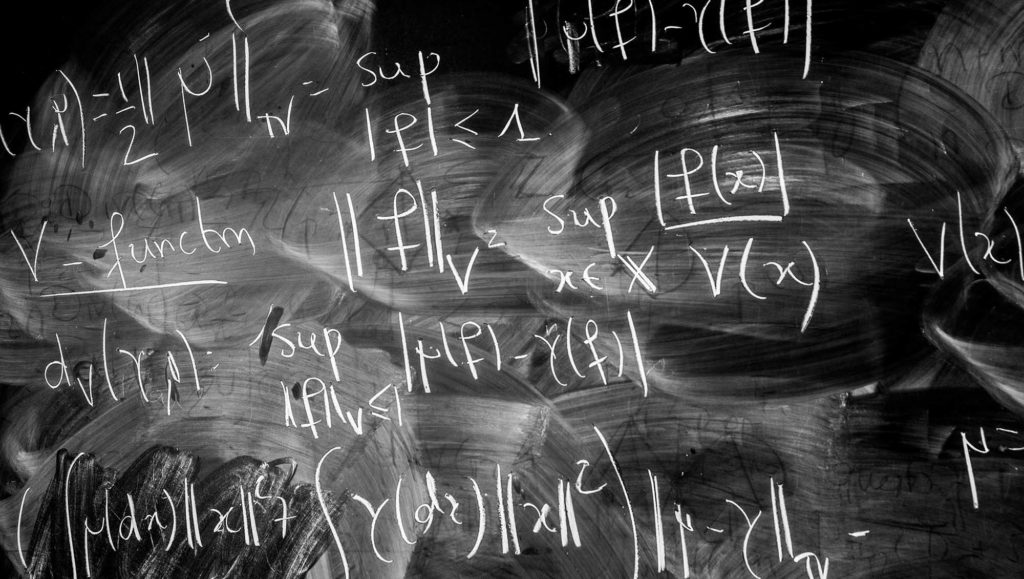 (γ, μ) = 1/2 || μ - ||_TV = sup_{|f| < 1} |μ(f) - γ(f)|
V - function ||f||_V = sup_{x ∈ X} |f(x)| / V(x) V(x)
d_V(γ, μ) = sup_{||f||_V ≤ 1} |μ(f) - γ(f)|
μ =
( ∫ μ(dx) ||x||^2 + ∫ γ(dx) ||x||^2 ) || μ - γ ||_TV -